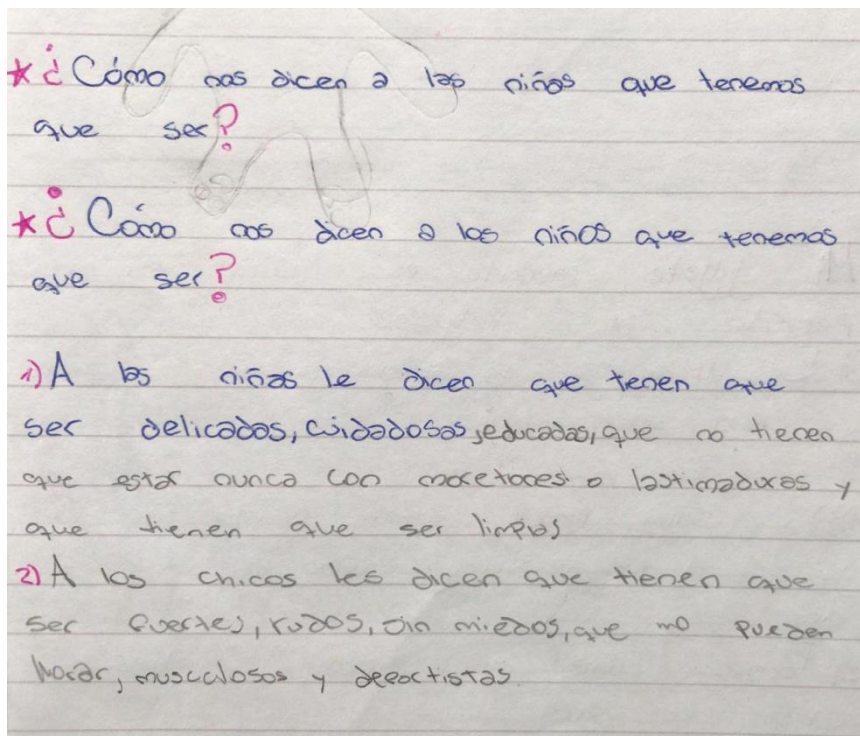 * ¿Cómo nos dicen a las niñas que tenemos
que ser?
* ¿Cómo nos dicen a los niños que tenemos
que ser?
1) A las niñas le dicen que tenen que
ser delicadas, cuidadosas, educadas, que no tienen
que estar nunca con moretones o lastimaduras y
que tienen que ser limpias
2) A los chicos les dicen que tienen que
ser fuertes, rudos, sin miedos, que no pueden
llorar, musculosos y deportistas.